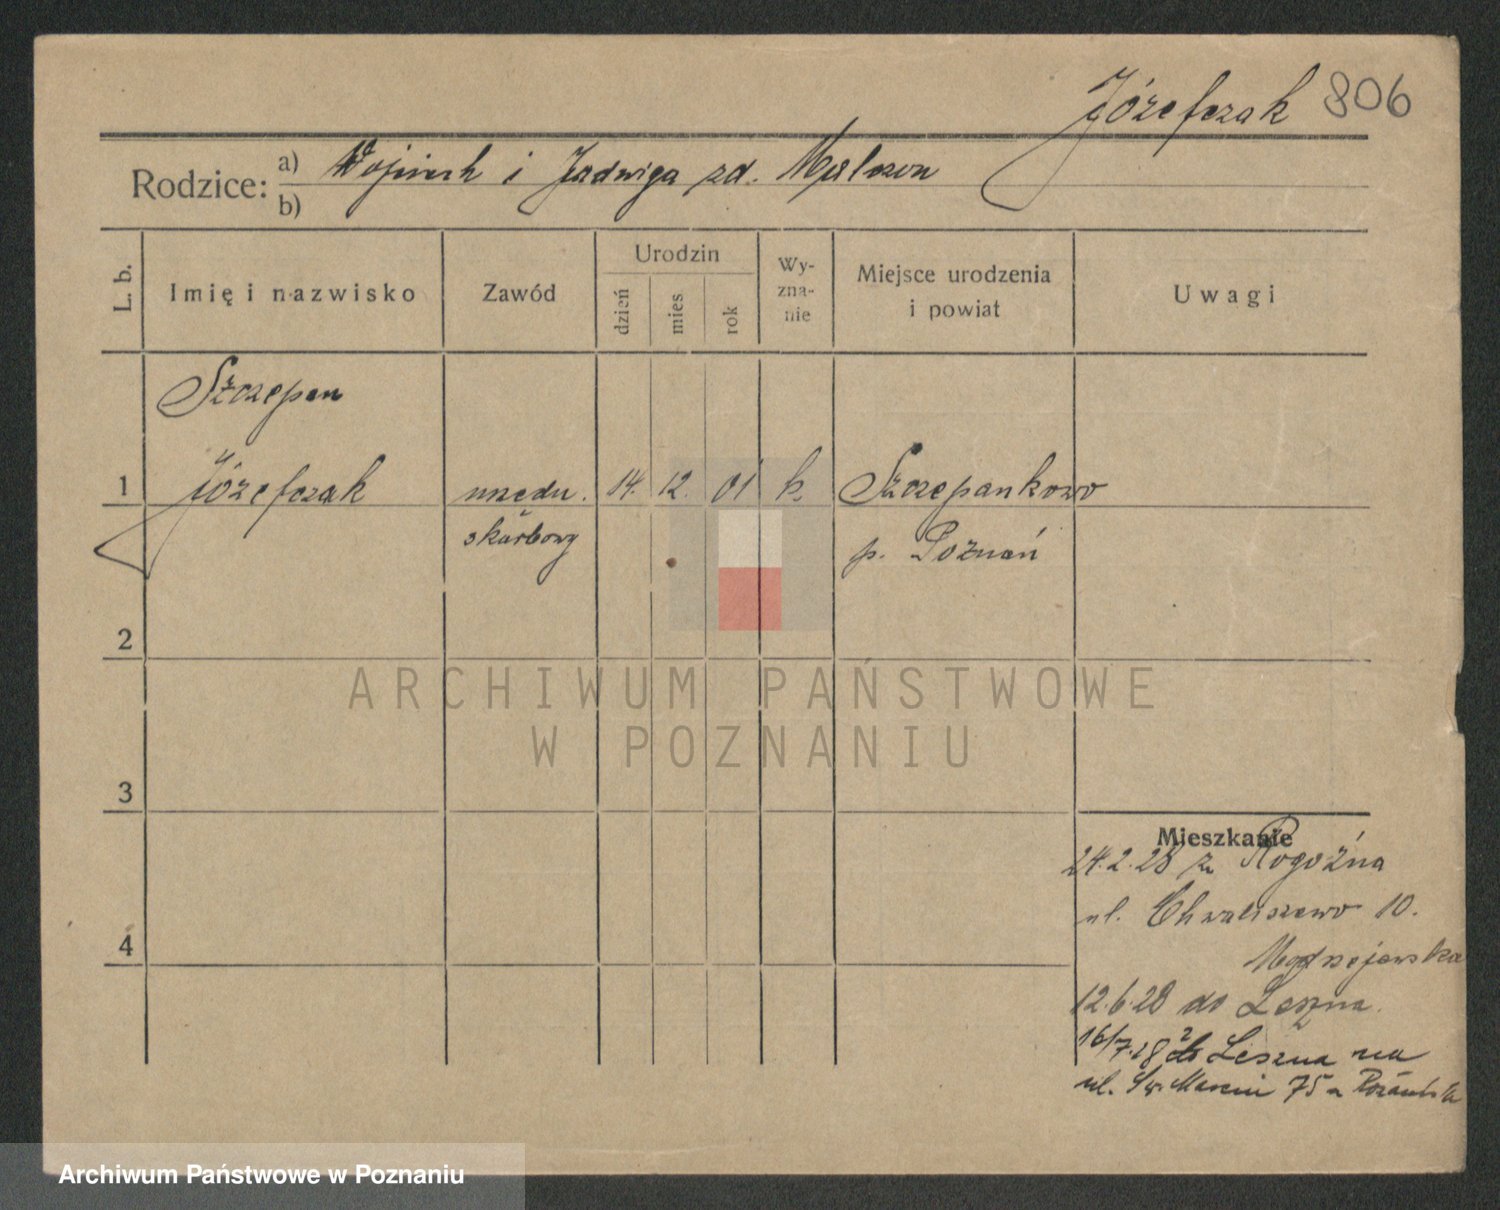 Józefczak 806
Rodzice: a) Wojciech i Jadwiga zd.
b)
L. b.
Imię i nazwisko
Zawód
Urodzin
dzień
mies
rok
Wy-
zna-
nie
Miejsce urodzenia
i powiat
Uwagi
Szczepan
1 Józefczak urzędn. 14. 12. 01 k. Szczepankowo
skarbowy p. Poznań
2
3
4
Mieszkanie
24.2.28 z Rogoźna
ul. Chwaliszewo 10.
Modrzejewska
12.6.28 do Leszna.
16/7.28 z Leszna na
ul. Św. Marcin 75
ARCHIWUM PAŃSTWOWE
W POZNANIU
Archiwum Państwowe w Poznaniu